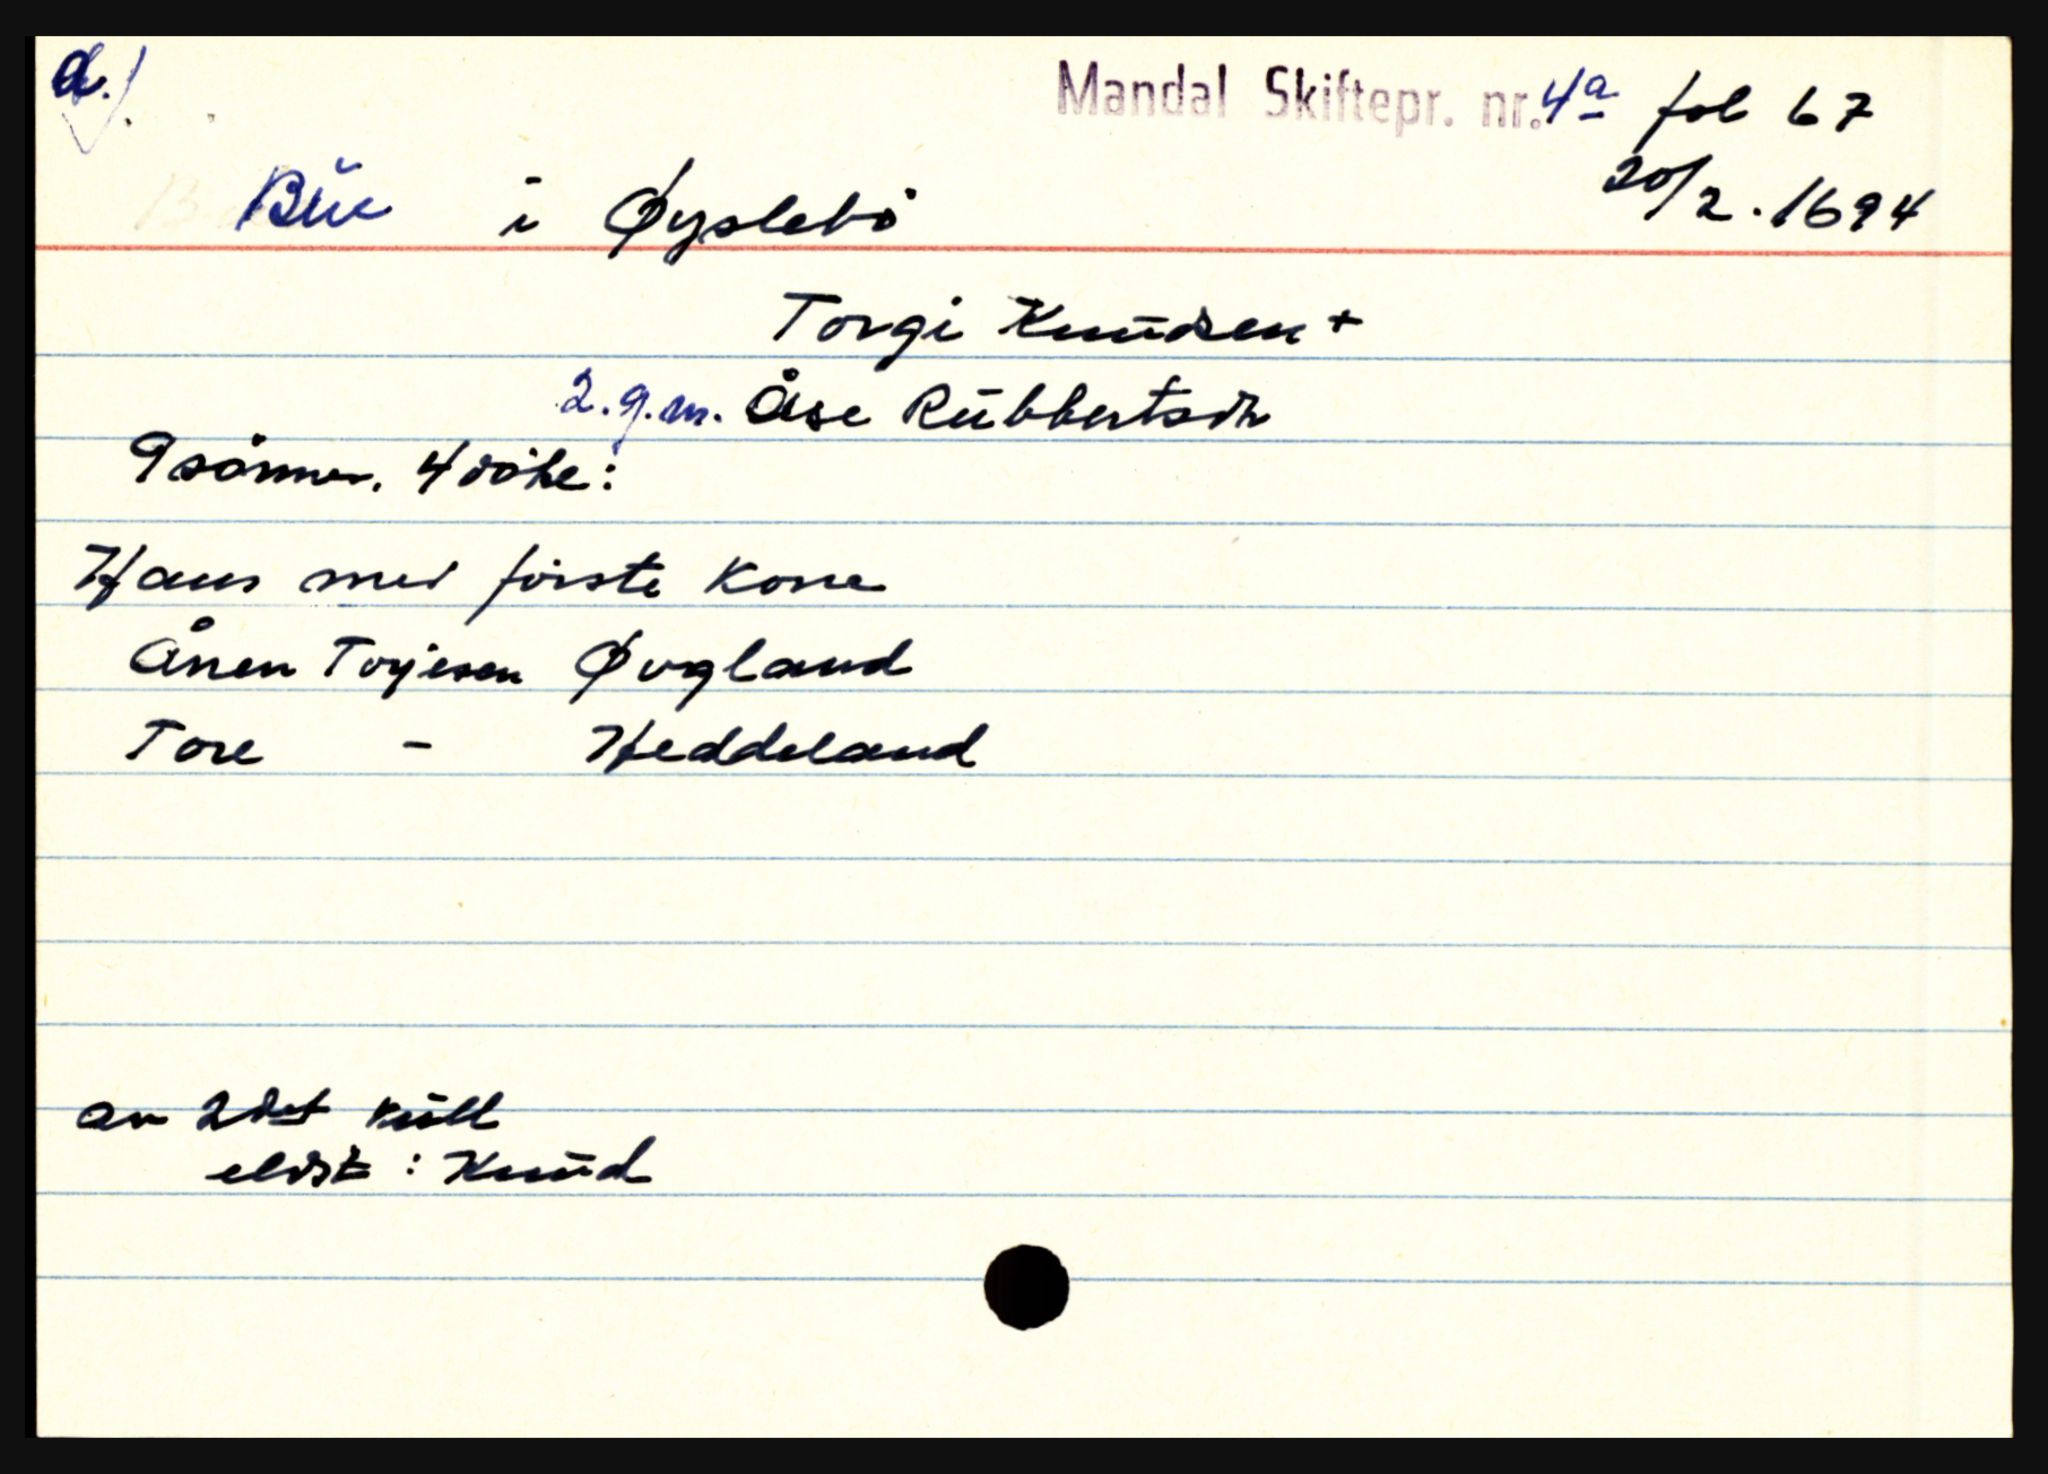 a.)
Mandal Skiftepr. nr. 4a fol 67
Bue i Øyslebö
20/2. 1694
Torgi Knudsen +
2. g. m. Åse Rubbertsdtr
9 sönner. 4 dötre:
Hans med förste kone
Ånen Torjesen Øvgland
Tore - Heddeland
av 2det kull
eldst : Knud